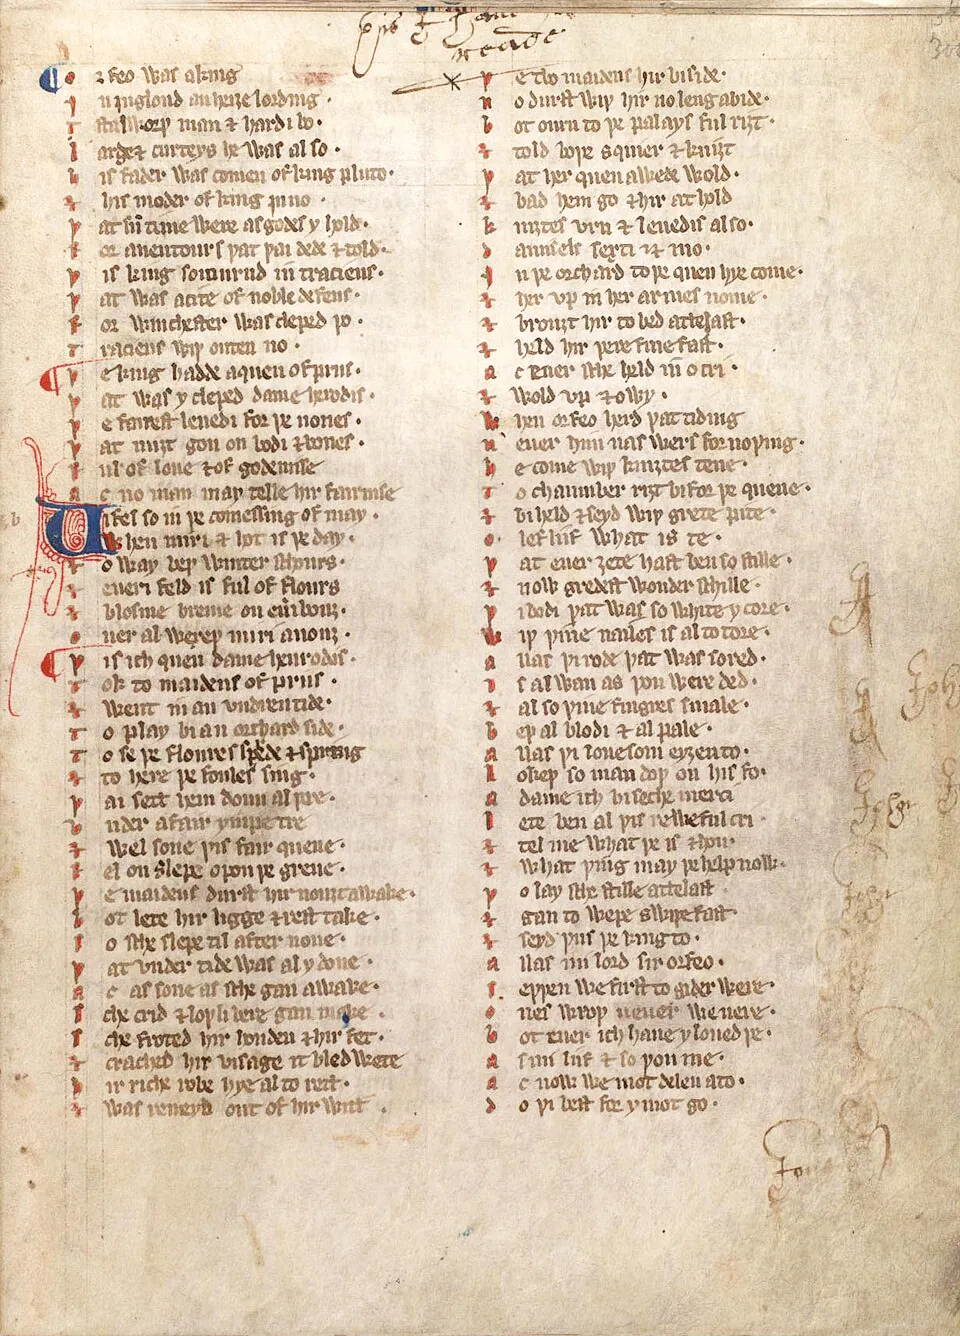 Orfeo was a king
In Inglond an heiȝe lording
Stalworþ man & hardi bo
Large & curteys he was also
His fader was comen of king Pluto
& his moder of king Iuno
Þat sum time were as godes yhold
For auentours þat þai dede & told
Þis king soiurnd in Traciens
Þat was a cite of noble defens
For Winchester was cleped þo
Traciens wiþouten no
Þe king hadde a quen of priis
Þat was ycleped dame Herodis
Þe fairest leuedi for þe nones
Þat miȝt gon on bodi & bones
Ful of loue & of godenisse
Ac no man may telle hir fairnise
Bifel so in þe comessing of may
When miri & hot is þe day
& oway beþ winter schours
& eueri feld is ful of flours
& blosme breme on eueri bouȝ
Ouer al wexeþ miri anouȝ
Þis ich quen dame Heurodis
Tok to maidens of priis
& went in an vndrentide
To play bi an orchard side
To se þe floures sprede & spring
& to here þe foules sing
Þai sett hem doun al þre
Vnder a fair ympe tre
& wel sone þis fair quene
Fel on slepe opon þe grene
Þe maidens durst hir nouȝt awake
Bot lete hir ligge & rest take
So sche slepe til after none
Þat vnder tide was al ydone
Ac as sone as sche gan awake
Sche crid & loþli bere gan make
Sche froted hir honden & hir fet
& crached hir visage it bled wete
Hir riche robe hye al to rett
& was reueyd out of hir witt
Þe two maidens hir biside
No durst wiþ hir no leng abide
Bot ourn to þe palays ful riȝt
& told boþe squier & kniȝt
Þat her quen awede wold
& bad hem go & hir at hold
Kniȝtes vrn & leuedis also
Damisels sexti & mo
In þe orchard to þe quen hye come
& her vp in her armes nome
& brouȝt hir to bed atte last
& held hir þere fine fast
Ac euer sche held in o cri
& wold vp & owy
When Orfeo herd þat tiding
Neuer him nas wers for no þing
He come wiþ kniȝtes tene
To chaumber riȝt bifor þe quene
& biheld & seyd wiþ grete pite
O lef liif what is te
Þat euer ȝete hast ben so stille
& now gredest wonder schille
Þi bodi þat was so white ycore
Wiþ þine nailes is al totore
Allas þi rode þat was so red
Is al wan as þou were ded
& also þine fingres smale
Beþ al blodi & al pale
Allas þi louesom eyȝen to
Lokeþ so man doþ on his fo
A dame ich biseche merci
Lete ben al þis reweful cri
& tel me what þe is & hou
& what þing may þe help now
Þo lay sche stille atte last
& gan to wepe swiþe fast
& seyd þus þe king to
Allas mi lord sir Orfeo
Seþþen we first togider were
Ones wroþ neuer we nere
Bot euer ich haue yloued þe
As mi liif & so þou me
Ac now we mot delen ato
Do þi best for y mot go